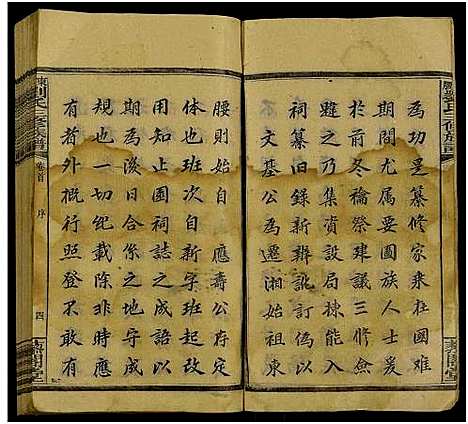 為功是纂修家乘在國難
期間尤屬要圖族人士爰
於前冬禴祭建議三修僉
韙之乃集資設局棟能入
祠纂旧錄新訛訂偽以
文基公為遷湘始祖東
腰則始自 應壽公存宗
體也班次自新字班起改
用知止園祠誌之成語以
期為後日合修之地字成
規也一切紀載除非時應
有者外概行照登不敢有
劉氏三修族譜
卷首
序
四